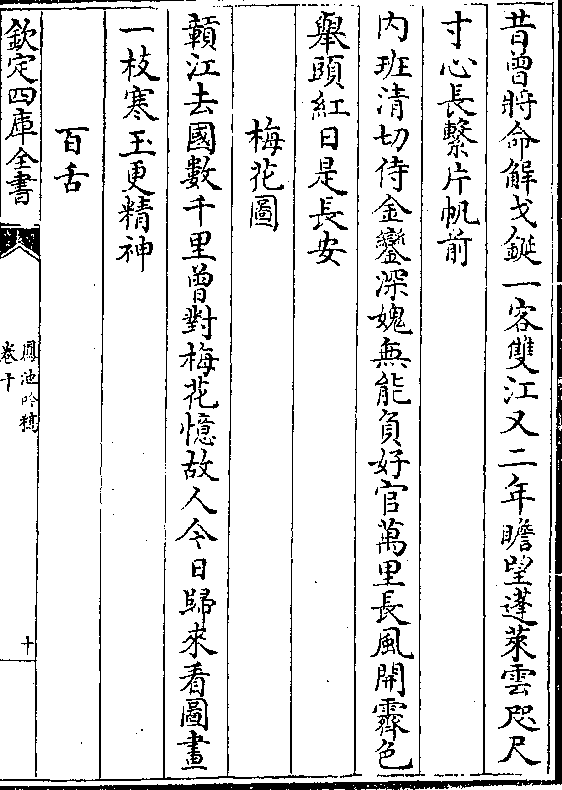 昔曾將命解戈鋋一客雙江又二年瞻望蓬萊雲咫尺
寸心長繫片帆前
内班清切侍金鑾深媿無能負好官萬里長風開霽色
舉頭紅日是長安
梅花圖
贑江去國數千里曾對梅花憶故人今日歸來看圖畫
一枝寒玉更精神
百舌
欽定四庫全書
鳳池吟稿
卷十
十